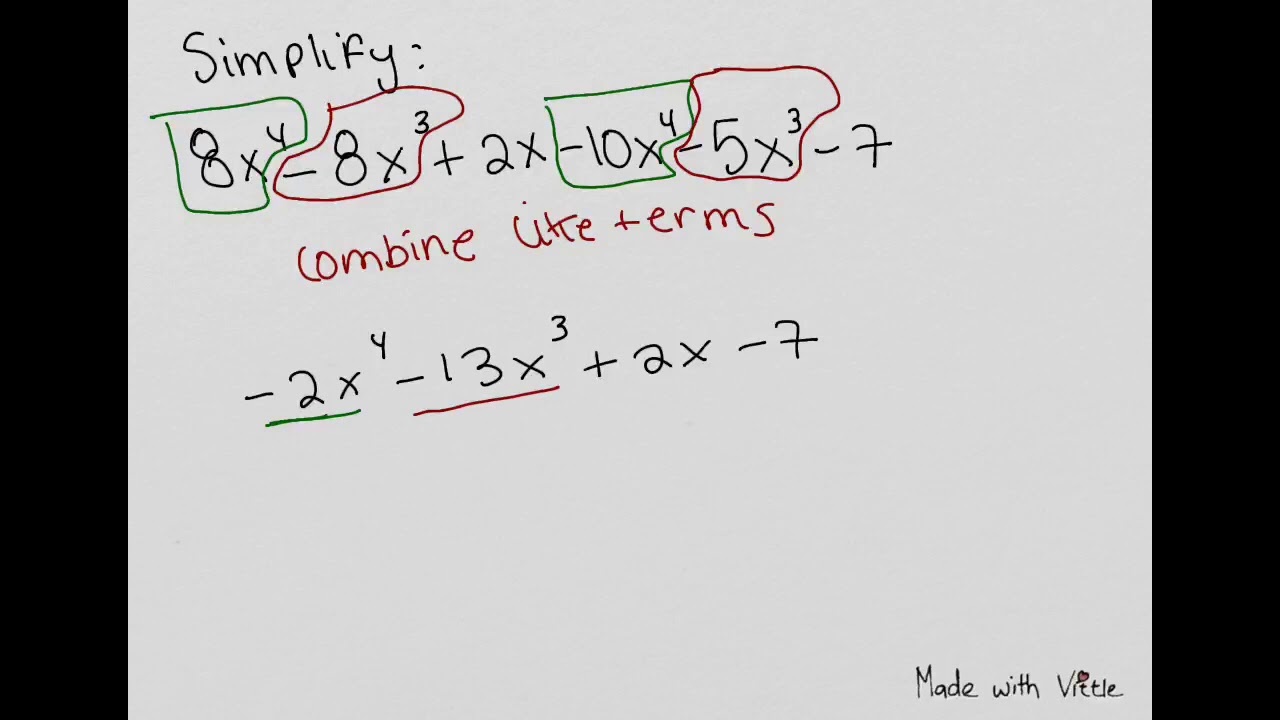 Simplify:
8x⁴ - 8x³ + 2x - 10x⁴ - 5x³ - 7
combine like terms
-2x⁴ - 13x³ + 2x - 7
Made with Vittle